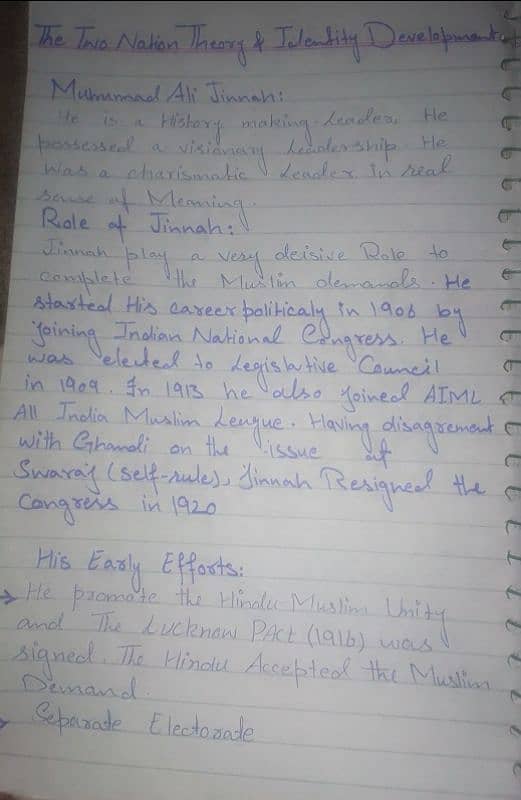 The Two Nation Theory & Identity Development
Muhammad Ali Jinnah:
He is a History making leader. He
possessed a visionary leadership. He
was a charismatic leader in real
sense of Meaning.
Role of Jinnah:
Jinnah play a very deisive Role to
complete the Muslim demands. He
started His career politicaly in 1906 by
joining Indian National Congress. He
was elected to Legislative Council
in 1909. In 1913 he also joined AIML
All India Muslim League. Having disagreement
with Ghandi on the issue of
Swaraj (self-rule), Jinnah Resigned the
Congress in 1920
His Early Efforts:
→ He promote the Hindu-Muslim Unity
and The Lucknow PAct (1916) was
signed. The Hindu Accepted the Muslim
Demand.
→ Separate Electorate